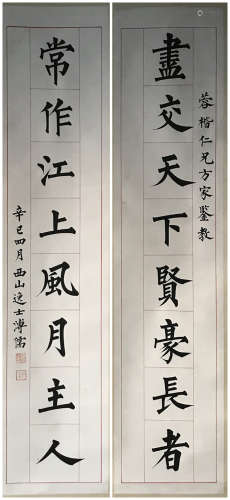 蓉楷仁兄方家鑒教
盡交天下賢豪長者
常作江上風月主人
辛巳四月西山逸士溥儒